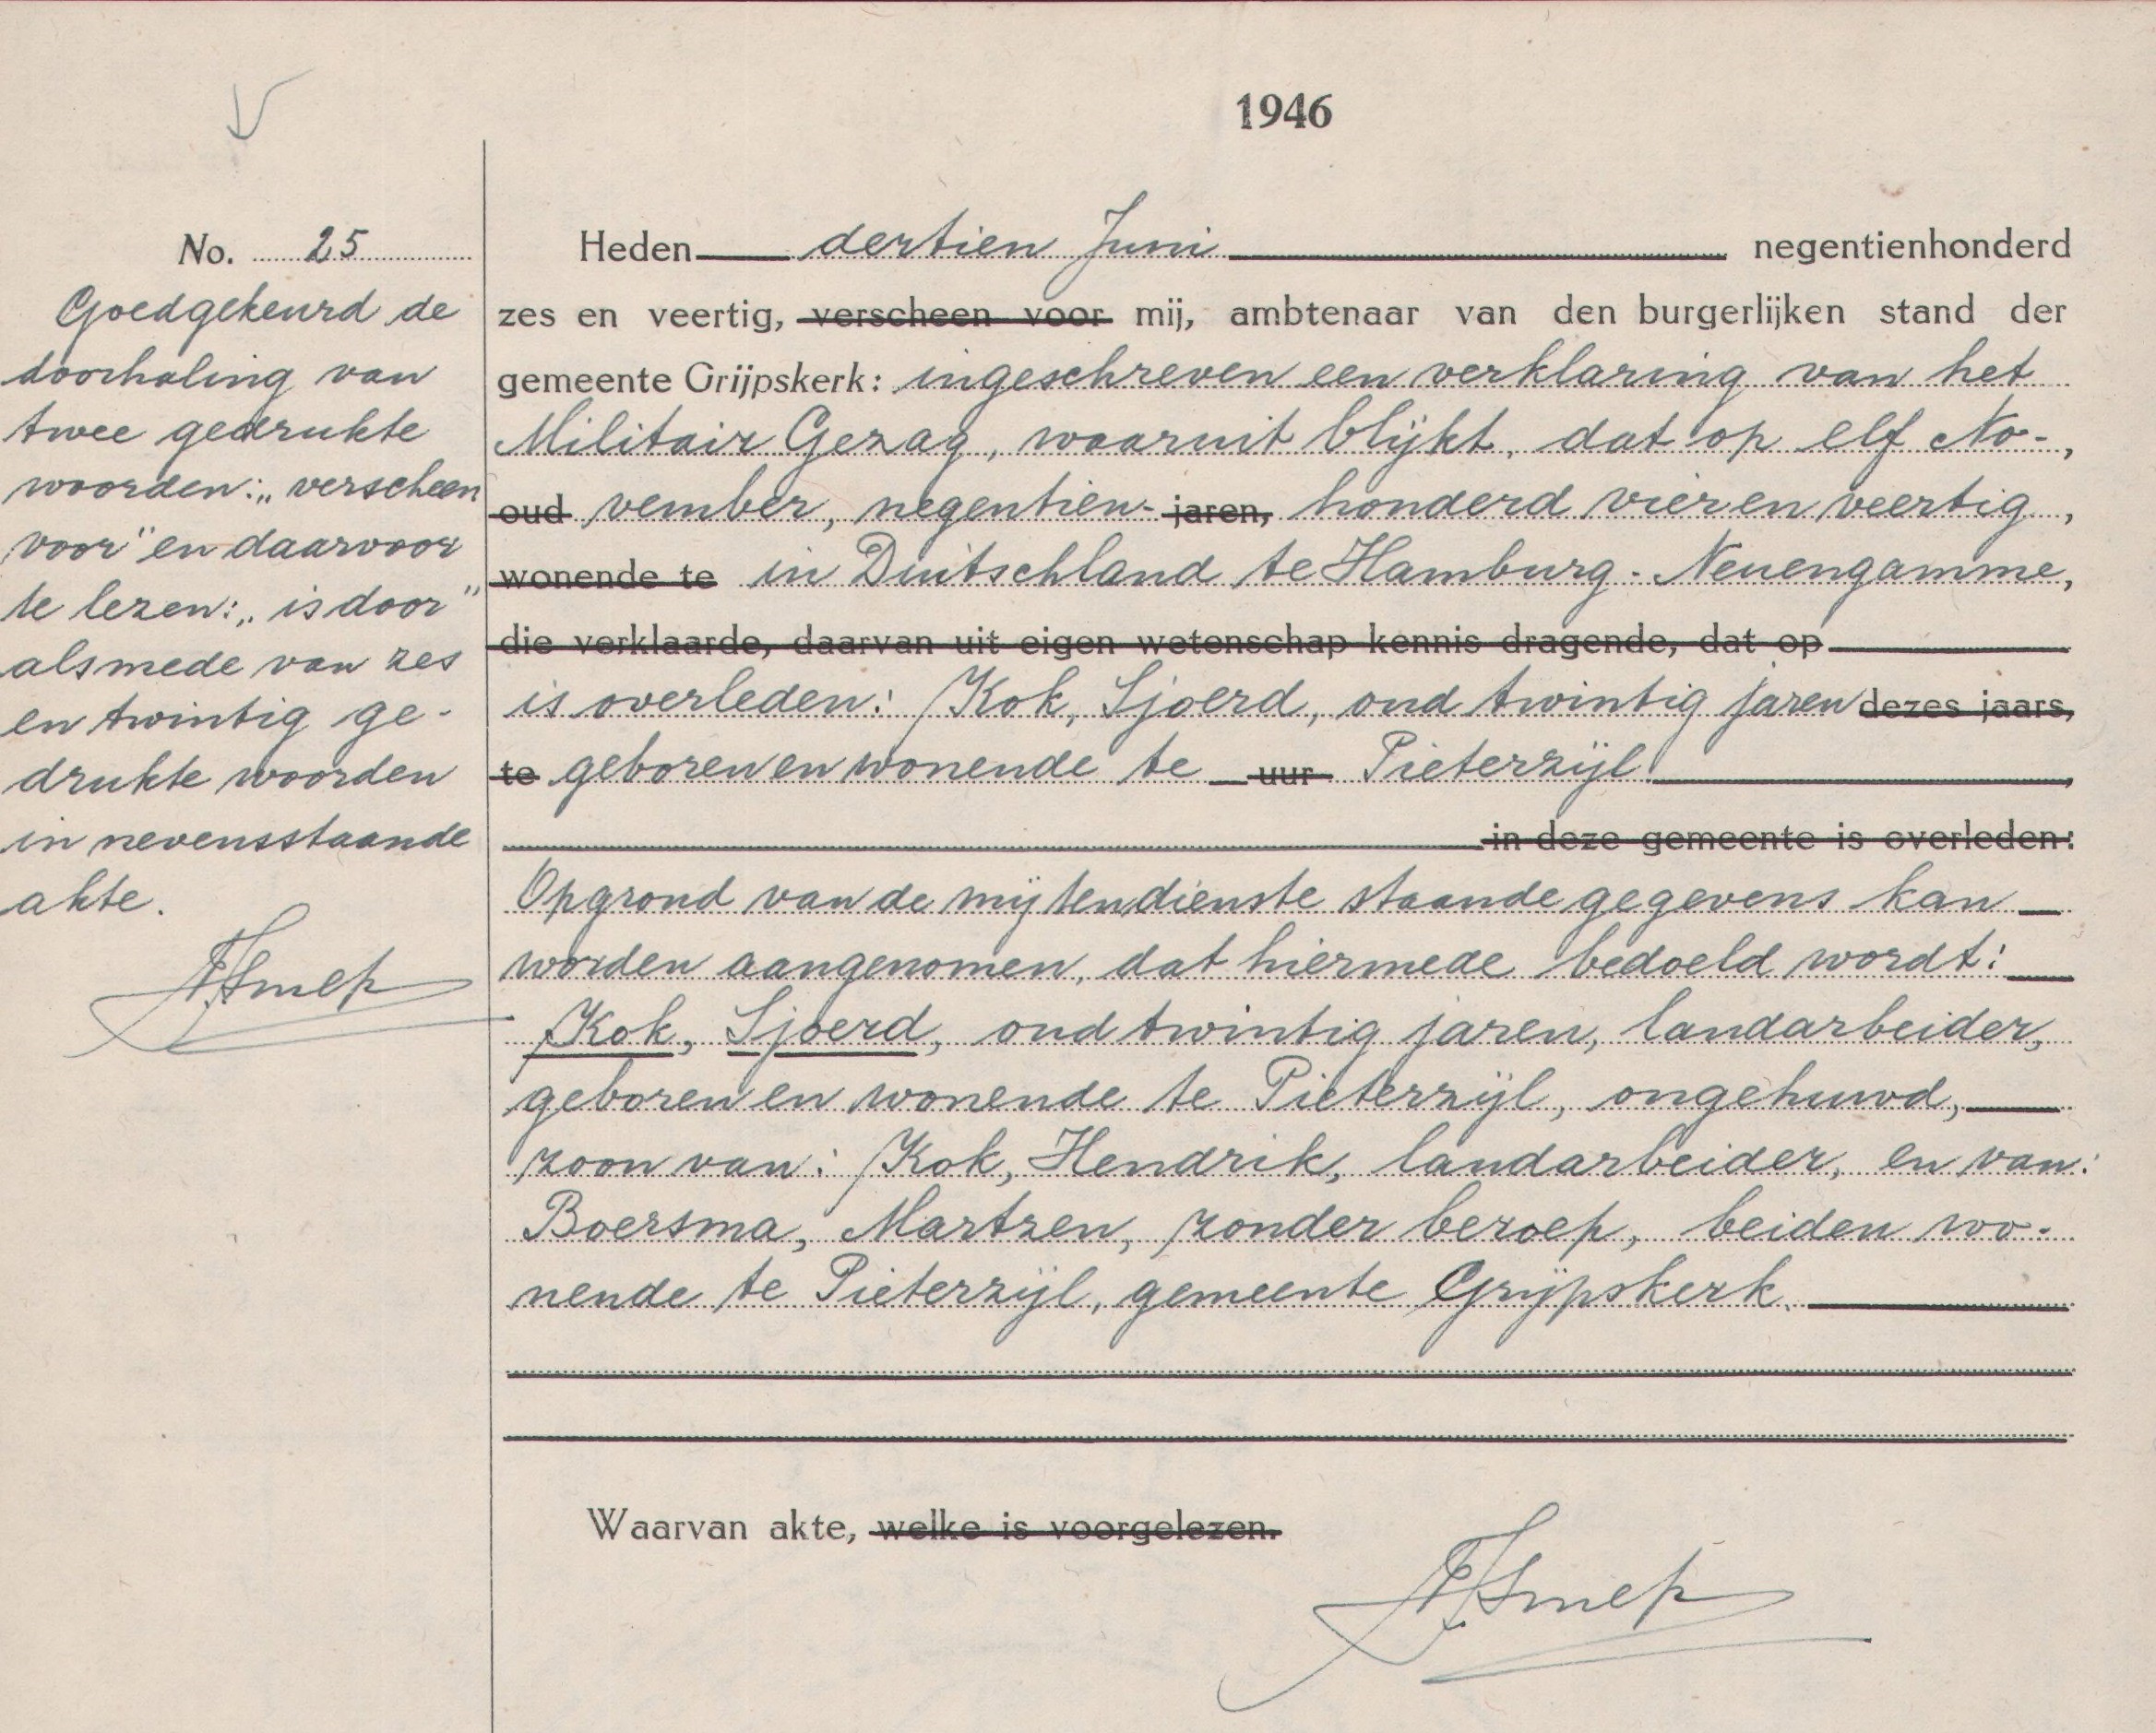 1946
No. 25
Goedgekeurd de
doorhaling van
twee gedrukte
woorden: „verscheen
voor" en daarvoor
te lezen: „is door"
alsmede van zes
en twintig ge-
drukte woorden
in nevensstaande
akte.
Heden dertien Juni negentienhonderd
zes en veertig, verscheen voor mij, ambtenaar van den burgerlijken stand der
gemeente Grijpskerk: ingeschreven een verklaring van het
Militair Gezag, waaruit blijkt, dat op elf No-,
oud vember, negentien- jaren, honderd vier en veertig,
wonende te in Duitschland te Hamburg-Neuengamme,
die verklaarde, daarvan uit eigen wetenschap kennis dragende, dat op
is overleden: Kok, Sjoerd, oud twintig jaren dezes jaars,
te geboren en wonende te uur Pieterzijl,
in deze gemeente is overleden:
Op grond van de mij ten dienste staande gegevens kan
worden aangenomen, dat hiermede bedoeld wordt:
Kok, Sjoerd, oud twintig jaren, landarbeider,
geboren en wonende te Pieterzijl, ongehuwd,
zoon van: Kok, Hendrik, landarbeider, en van:
Boersma, Martzen, zonder beroep, beiden wo-
nende te Pieterzijl, gemeente Grijpskerk.
Waarvan akte, welke is voorgelezen.